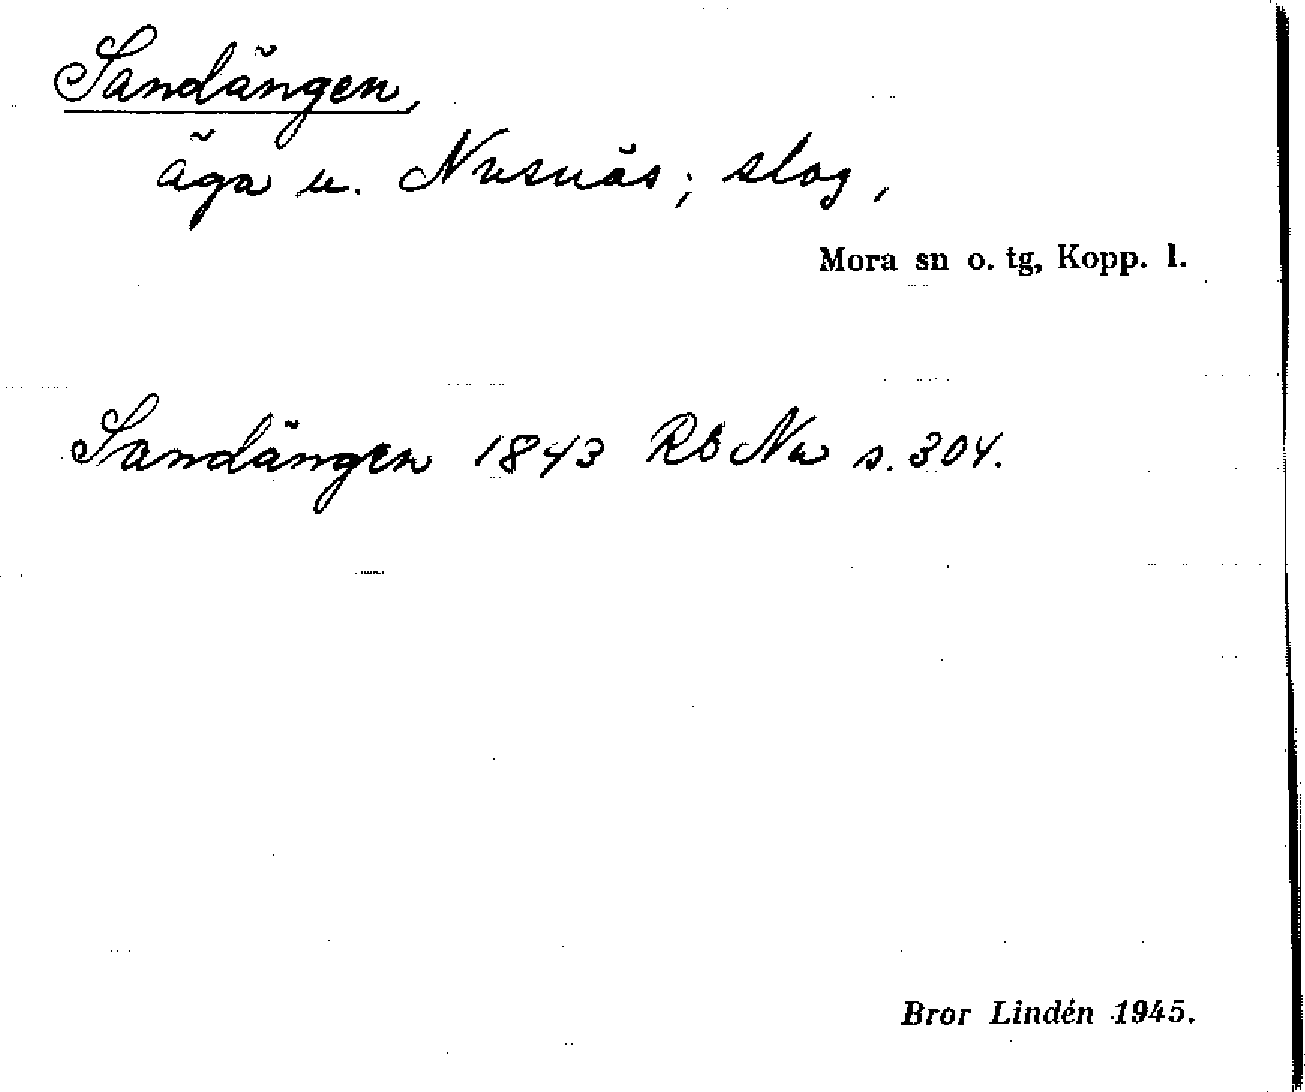 Sandängen,
äga u. Nusnäs; slog,
Mora sn o. tg, Kopp. l.
Sandängen 1843 Rb Nu s. 304.
Bror Lindén 1945.